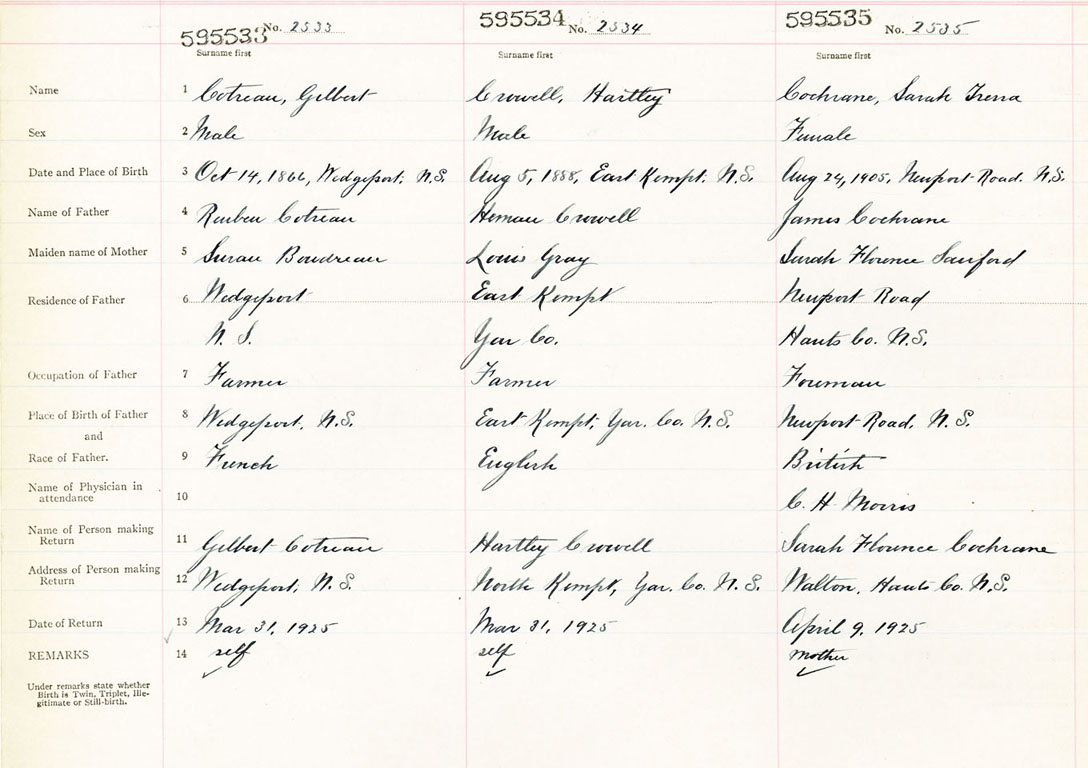 595533 No. 2533 595534 No. 2534 595535 No. 2535
Surname first Surname first Surname first
Name 1 Cotreau, Gilbert Crowell, Hartley Cochrane, Sarah Irena
Sex 2 Male Male Female
Date and Place of Birth 3 Oct 14, 1866, Wedgeport, N.S. Aug 5, 1888, East Kempt. N.S. Aug 24, 1905, Newport Road. N.S.
Name of Father 4 Reuben Cotreau Heman Crowell James Cochrane
Maiden name of Mother 5 Susan Boudreau Louis Gray Sarah Florence Sanford
Residence of Father 6 Wedgeport East Kempt Newport Road
N. S. Yar Co. Hants Co. N.S.
Occupation of Father 7 Farmer Farmer Foreman
Place of Birth of Father 8 Wedgeport, N.S. East Kempt, Yar. Co. N.S. Newport Road, N.S.
and
Race of Father. 9 French English British
Name of Physician in
attendance 10 C. H. Morris
Name of Person making
Return 11 Gilbert Cotreau Hartley Crowell Sarah Florence Cochrane
Address of Person making
Return 12 Wedgeport, N.S. North Kempt, Yar. Co. N.S. Walton, Hants Co. N.S.
Date of Return 13 Mar 31, 1925 Mar 31, 1925 April 9, 1925
REMARKS 14 self self mother
Under remarks state whether
Birth is Twin, Triplet, Ille-
gitimate or Still-birth.